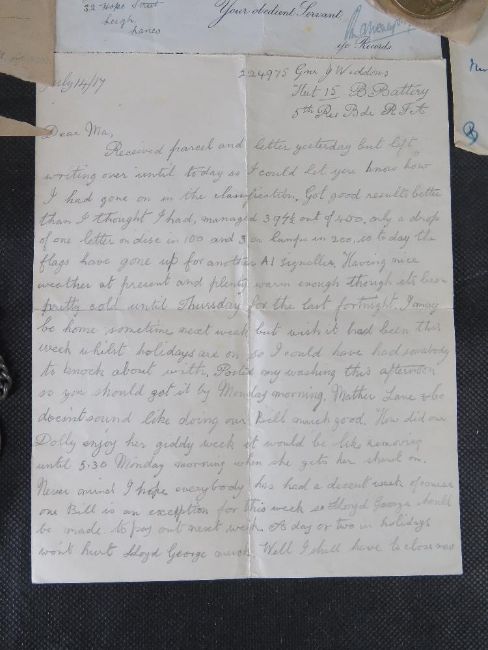 32 Hope Street
Leigh
Lancs
Your obedient Servant,
i/c Records
July 14/17
224975 Gnr J Widdows
Hut 15 B Battery
5th Res Bde R F A
Dear Ma,
Received parcel and letter yesterday but left
writing over until today so I could let you know how
I had gone on in the classification. Got good results better
than I thought I had, managed 39 out of 400, only a drop
of one letter on disc in 100 and 3 on lamps in 200, so today the
flags have gone up for another A1 signaller. Having nice
weather at present and plenty warm enough though its been
pretty cold until Thursday for the last fortnight. I may
be home sometime next week but wish it had been this
week whilst holidays are on so I could have had somebody
to knock about with. Posted my washing this afternoon
so you should get it by Monday morning. Mather Lane
doesn't sound like doing our Bill much good. How did our
Dolly enjoy her giddy week it would be like
until 5.30 Monday morning when she gets her shawl on.
Never mind I hope everybody has had a decent week of course
one Bill is an exception for this week so Lloyd George should
be made to pay out next week. A day or two in holidays
won't hurt Lloyd George much. Well I shall have to close now